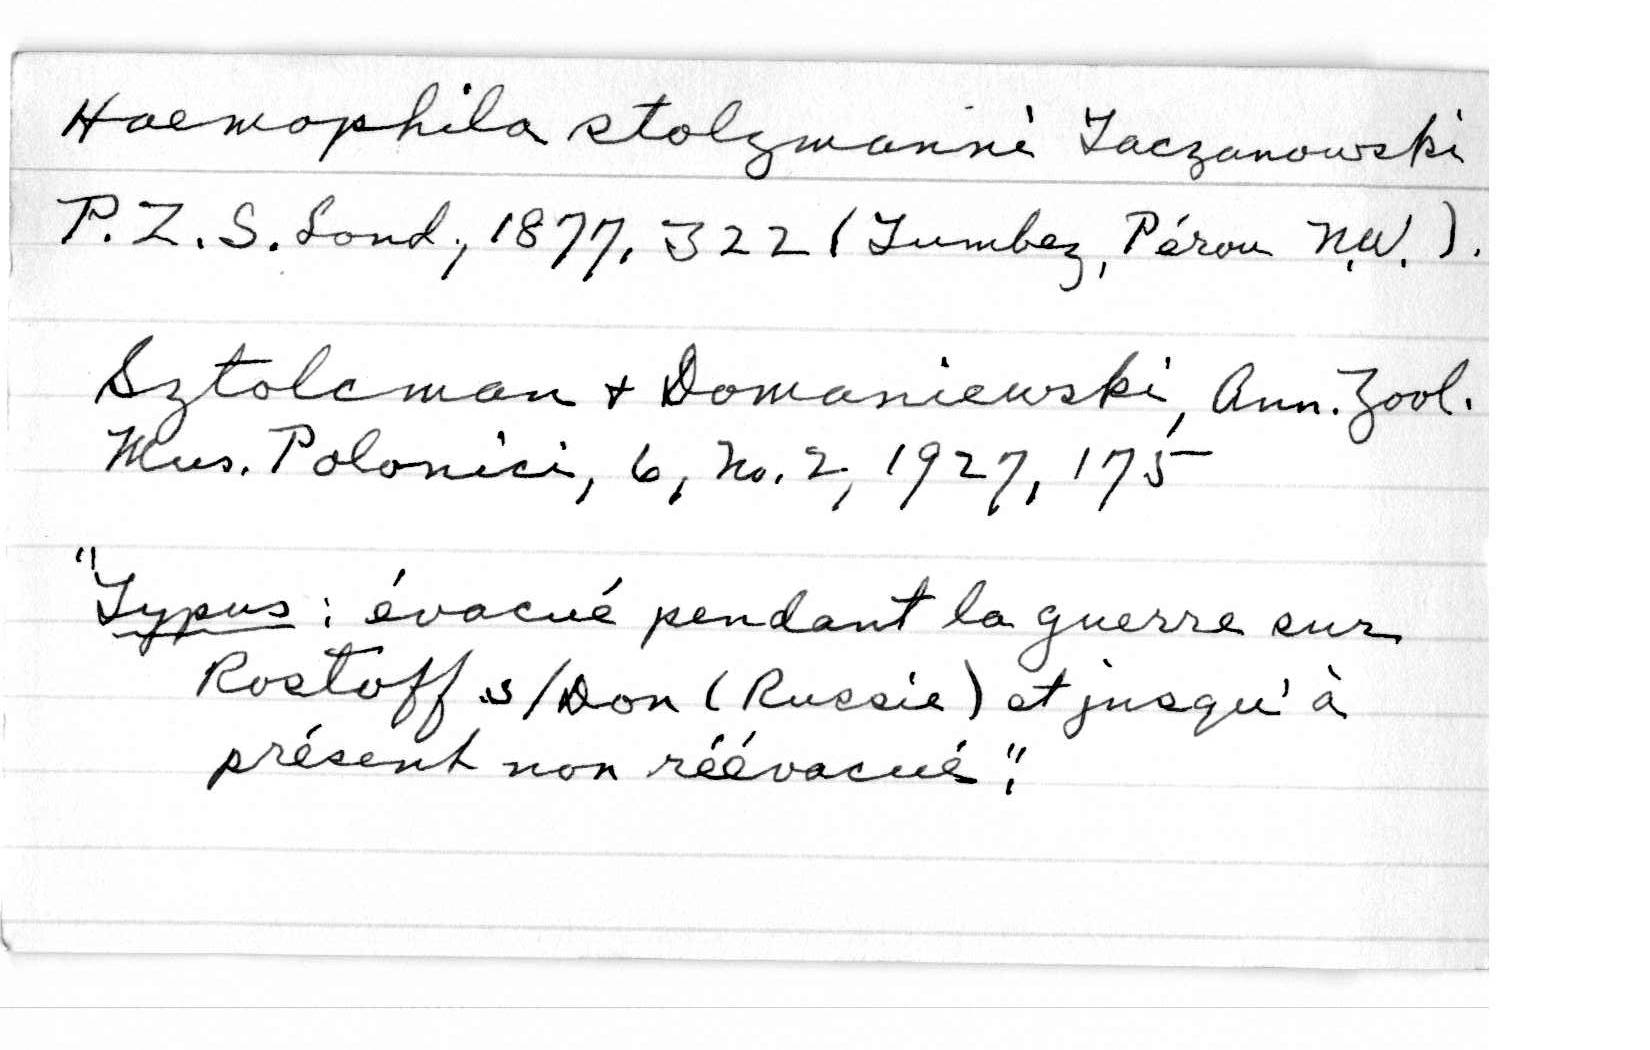 Haemophila stolzmanni Taczanowski
P. Z. S. Lond., 1877, 322 (Tumbez, Pérou N.W.).
Sztolcman + Domaniewski, Ann. Zool.
Mus. Polonici, 6, No. 2, 1927, 175
"Typus: évacué pendant la guerre sur
Rostoff s/Don (Russie) et jusqu'à
présent non réévacué".